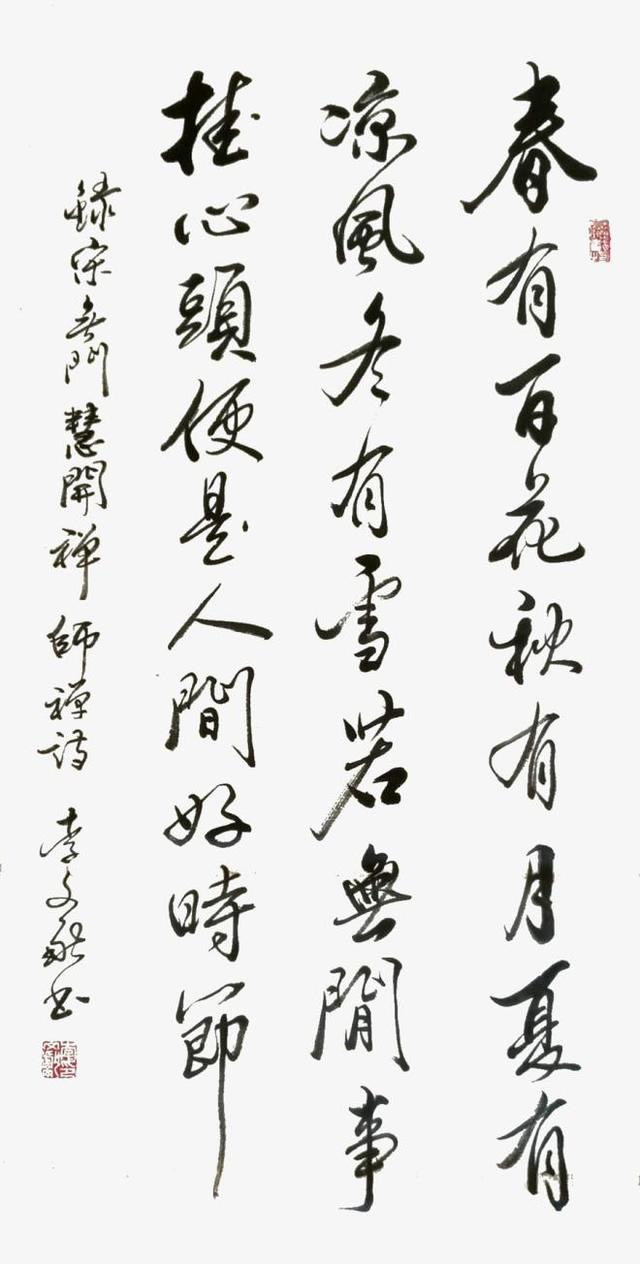 春有百花秋有月夏有
凉風冬有雪若無閒事
挂心頭便是人間好時節
録宋無門慧開禅師禅詩 李文 书